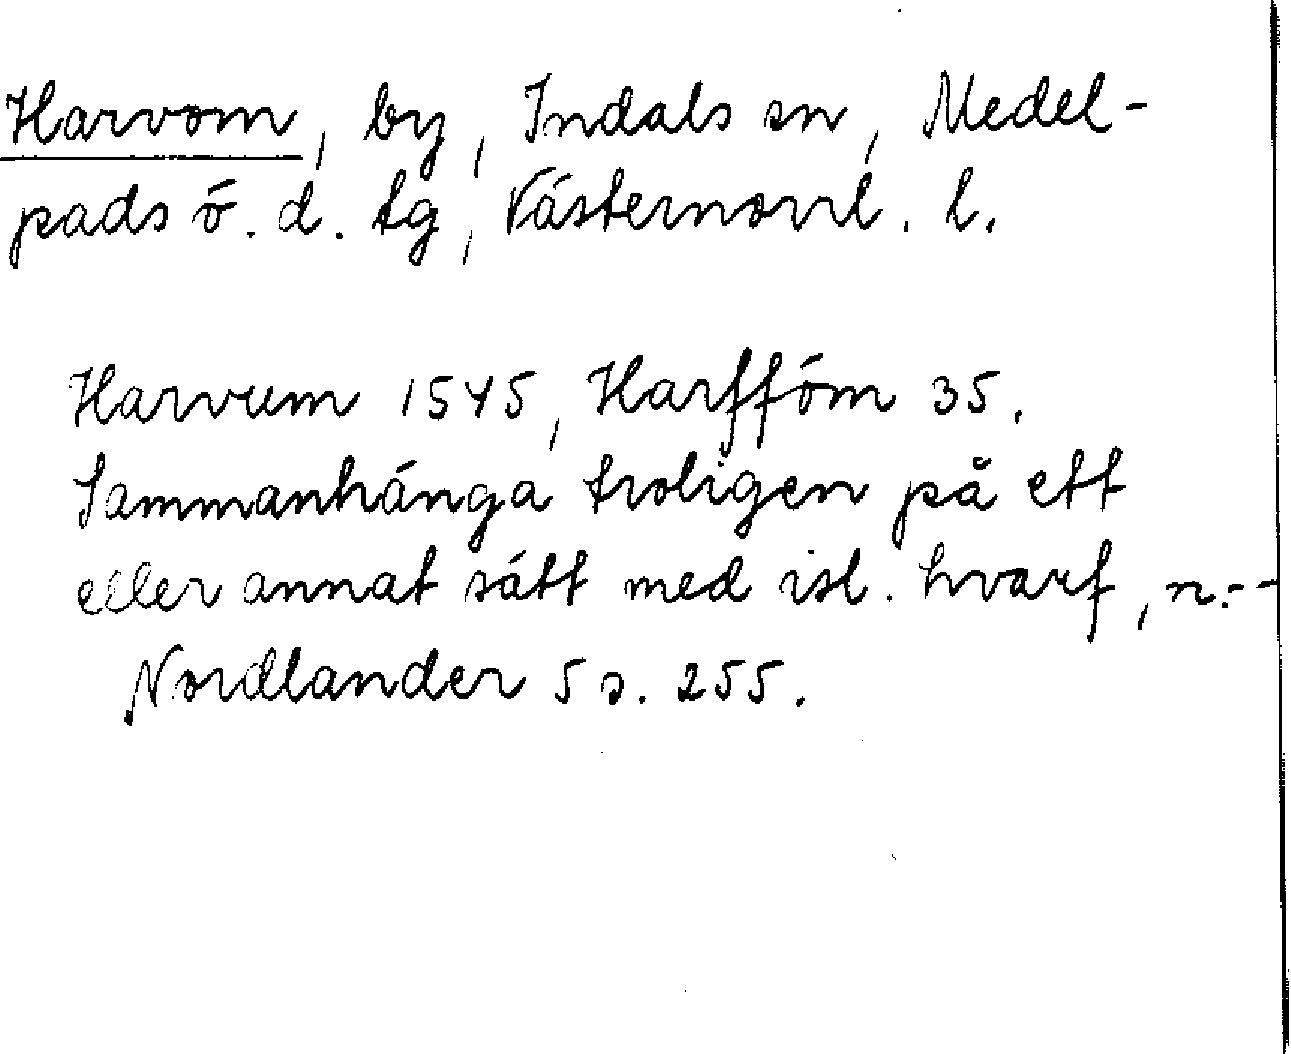 Harvom, by, Indals sn, Medel-
pads ö. d. tg, Västernorrl. l.
Harvum 1545, Harfföm 35.
Sammanhänga troligen på ett
eller annat sätt med isl. hvarf, n.--
Nordlander 5 s. 255.